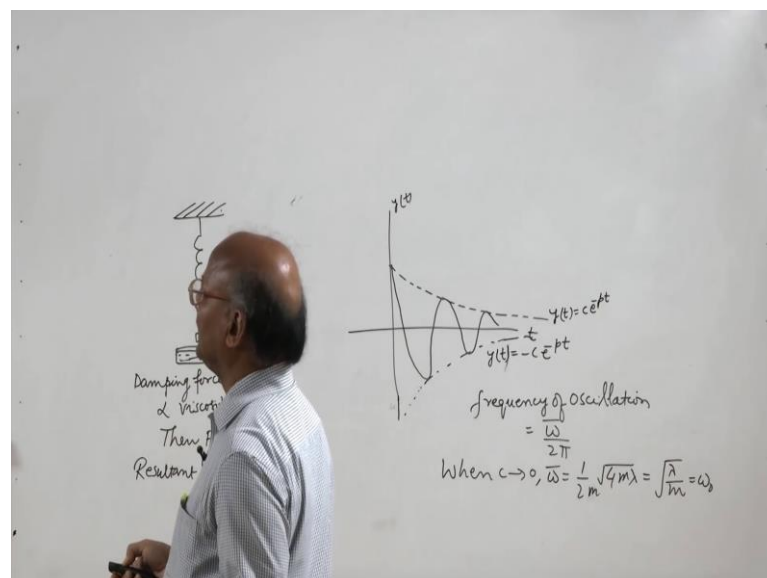 y(t)
y(t)=ce^{-pt}
t
y(t)=-ce^{-pt}
Damping forc
α visco
Then F
Resultant
frequency of oscillation
= ω̅/2π
When c→0, ω̅ = 1/2m √4mλ = √λ/m = ω₀